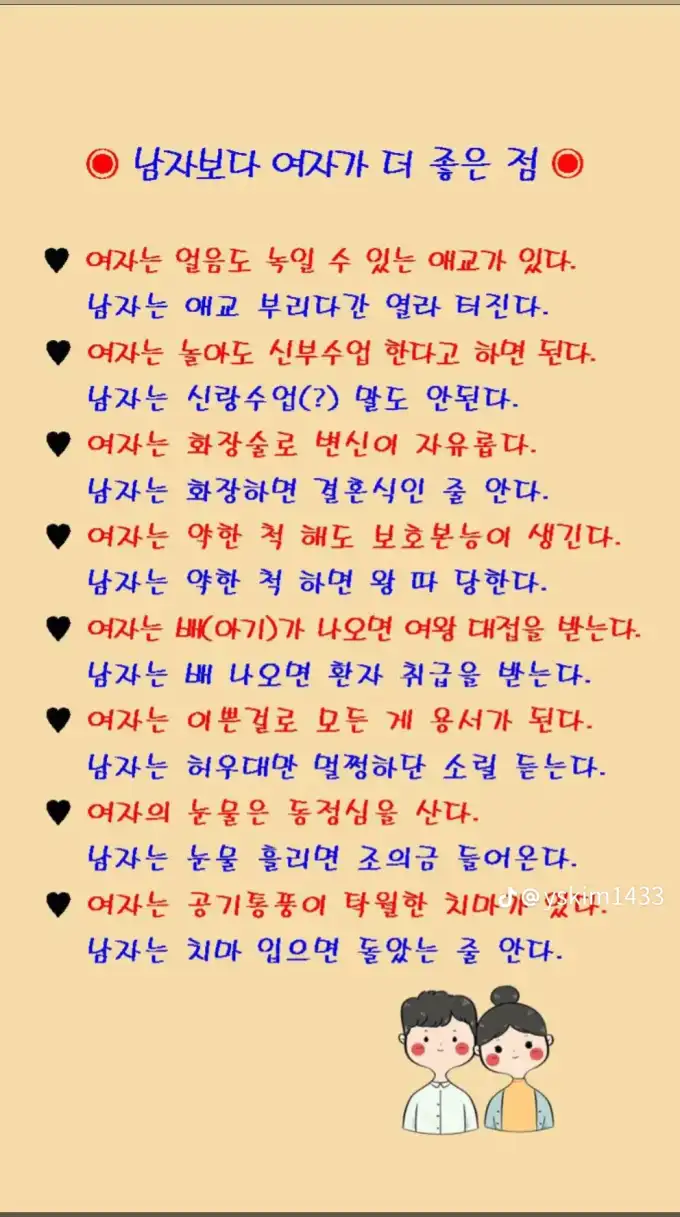 ◉ 남자보다 여자가 더 좋은 점 ◉
♥ 여자는 얼음도 녹일 수 있는 애교가 있다.
남자는 애교 부리다간 열라 터진다.
♥ 여자는 놀아도 신부수업 한다고 하면 된다.
남자는 신랑수업(?) 말도 안된다.
♥ 여자는 화장술로 변신이 자유롭다.
남자는 화장하면 결혼식인 줄 안다.
♥ 여자는 약한 척 해도 보호본능이 생긴다.
남자는 약한 척 하면 왕 따 당한다.
♥ 여자는 배(아기)가 나오면 여왕 대접을 받는다.
남자는 배 나오면 환자 취급을 받는다.
♥ 여자는 이쁜걸로 모든 게 용서가 된다.
남자는 허우대만 멀쩡하단 소릴 듣는다.
♥ 여자의 눈물은 동정심을 산다.
남자는 눈물 흘리면 조의금 들어온다.
♥ 여자는 공기통풍이 탁월한 치마가 있다.
@yskim1433
남자는 치마 입으면 돌았는 줄 안다.